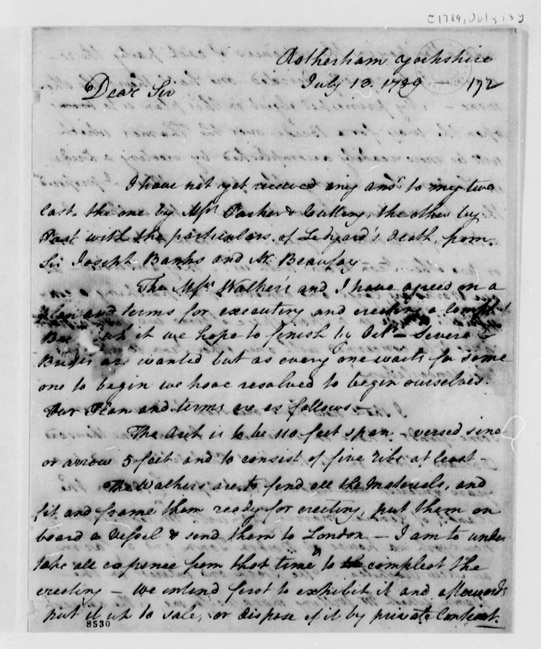 C1789, July 13]
Rotherham Yorkshire
July 13. 1789 — 172
Dear Sir
I have not yet received any ansr to my two
last, the one by Messrs Parker & Cutting, the other by
Post with the particulars of Ledyard's death, from
Sir Joseph Banks and Mr Beaufoy
The Messrs Walker's and I have agreed on a
plan and terms for executing and erecting a
it we hope to finish by Octr
Bridges are wanted but as every one waits for some
one to begin we have resolved to begin ourselves.
Our Plan and terms are as follows—
The Arch is to be 110 feet span — versed sine
or arrow 5 feet and to consist of five ribs at least —
The Walkers are to find all the Materials, and
fit and frame them ready for erecting, put them on
board a Vessel & send them to London — I am to under
take all expence from that time & to compleat the
erecting — we intend first to exhibit it and afterwards
put it up to sale, or dispose of it by private Contract.
8530